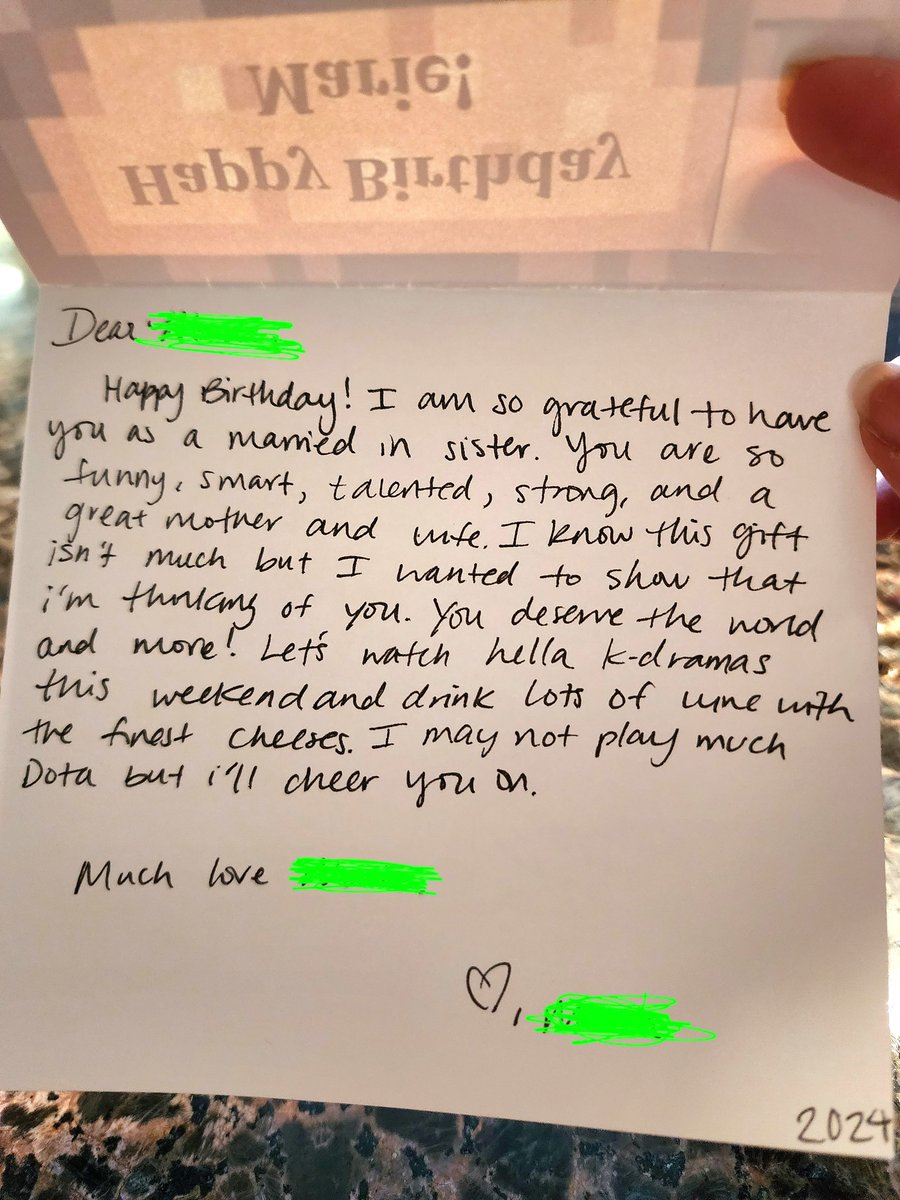 Happy Birthday
Marie!
Dear
Happy Birthday! I am so grateful to have
you as a married in sister. You are so
funny, smart, talented, strong, and a
great mother and wife. I know this gift
isn't much but I wanted to show that
i'm thinking of you. You deserve the world
and more! Let's watch hella k-dramas
this weekend and drink lots of wine with
the finest cheeses. I may not play much
Dota but i'll cheer you on.
Much love
♡,
2024